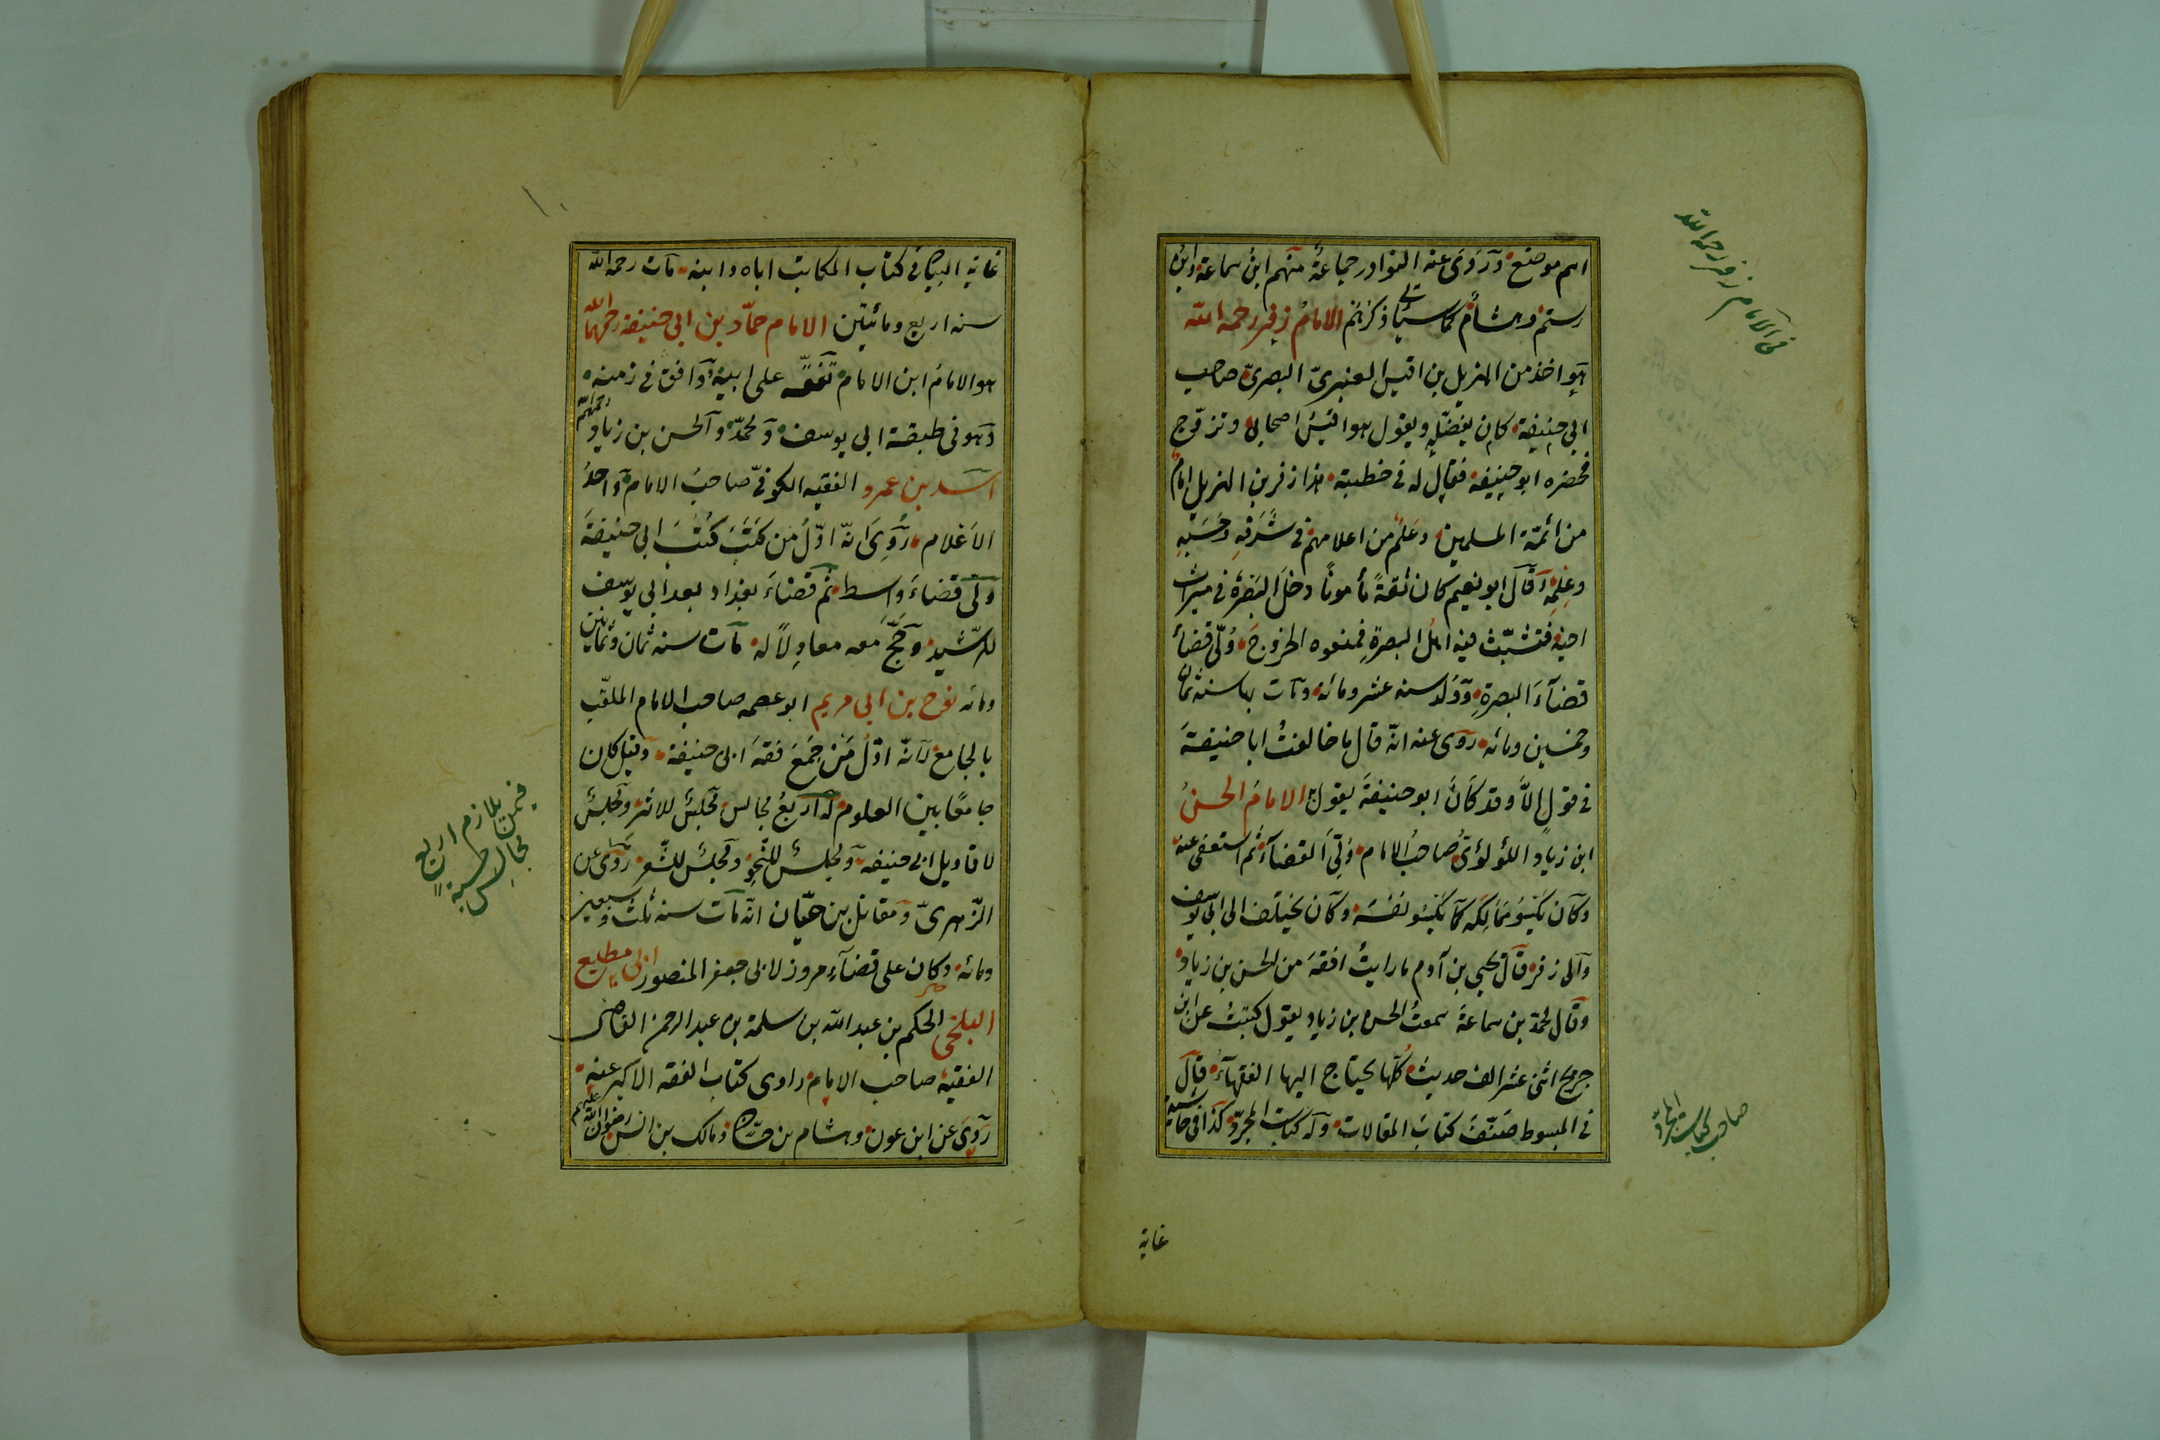 اسم موضع وروى عنه النوادر جماعة منهم ابن سماعة وابن
رستم وهشام كما سيأتي ذكرهم الامام زفر رحمه الله
هو اخذ من الهزيل بن اقيس العنبرىّ البصرىّ صاحب
ابى حنيفة كان يفضّله ويقول هو اقيس اصحابى وتزوّج
فحضره ابو حنيفة فقال له فى خطبته هذا زفر بن الهزيل امام
من ائمّة المسلمين وعلم من اعلامهم فى شرفه وحسبه
وعلمه قال ابو نعيم كان ثقةً مأموناً دخل البصرة فى ميراث
اخيه فتشبّث فيه اهل البصرة فمنعوه الخروج ولّى قضاء
قضاء البصرة وولد سنه عشر ومائة ومات بها سنة ثمان
وخمسين ومائه روى عنه انّه قال ما خالفت ابا حنيفة
فى قول الاّ وقد كان ابو حنيفة يقول به الامام الحسن
ابن زياد اللؤلؤىّ صاحب الامام ولّى القضاء ثم استعفى عنه
وكان يكسو مماليكه كما يكسو نفسه وكان يختلف الى ابى يوسف
والى زفر قال يحيى بن آدم ما رايت افقه من الحسن بن زياد
وقال محمد بن سماعة سمعت الحسن بن زياد يقول كتبت عن ابن
جريج اثنى عشر الف حديث كلّها يحتاج اليها الفقهاء قال
فى المبسوط صنّف كتاب المقالات وله كتاب المجرّد كذا فى حاشية
غاية
فى الامام زفر رحمه الله
صاحب كتاب المجرّد
غاية البيان فى كتاب المكاتب اباه وابنه مات رحمه الله
سنه اربع ومائتين الامام حمّاد بن ابى حنيفه رحمهما الله
هو الامام ابن الامام تفقّه على ابيه ووافق فى زمنه
وهو فى طبقة ابى يوسف ومحمدّ والحسن بن زياد رحمهم الله
اسد بن عمرو الفقيه الكوفىّ صاحب الامام واحد
الاعلام روى انّه اوّل من كتب كتب ابى حنيفة
ولّى قضاء واسط ثم قضاء بغداد بعد ابى يوسف
للرّشيد وحجّ معه معادلاً له مات سنه ثمان وثمانين
ومائه نوح بن ابى مريم ابو عصمه صاحب الامام الملقّب
بالجامع لانّه اوّل من جمع فقه ابى حنيفة وقيل كان
جامعًا بين العلوم له اربع مجالس مجلس للاثر ومجلس
لاقاويل ابى حنيفه ومجلس للنّحو ومجلس للشّعر روى عن
الزّهرىّ ومقاتل بن حيّان انّه مات سنه ثلث وسبعين
ومائه وكان على قضاء مرو زلابى جعفر المنصور ابى مطيع
البلخى الحكم بن عبد الله بن سلمة بن عبد الرحمن القاضى
الفقيه صاحب الامام راوى كتاب الفقه الاكبر عنه
روى عن ابن عون وهشام بن حسّان ومالك بن انس رضوان الله عليهم
فيمن يلازم اربع
مجالس